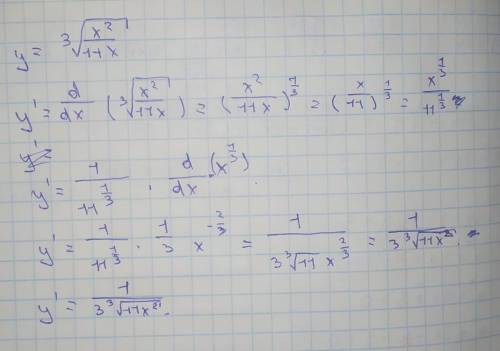 y = ∛(x²/11x)
y' = d/dx (∛(x²/11x)) = (x²/11x)^(1/3) = (x/11)^(1/3) = x^(1/3)/11^(1/3)
y' = 1/11^(1/3) · d/dx (x^(1/3))
y' = 1/11^(1/3) · 1/3 x^(-2/3) = 1/(3∛11 x^(2/3)) = 1/(3∛(11x²)).
y' = 1/(3∛(11x²)).